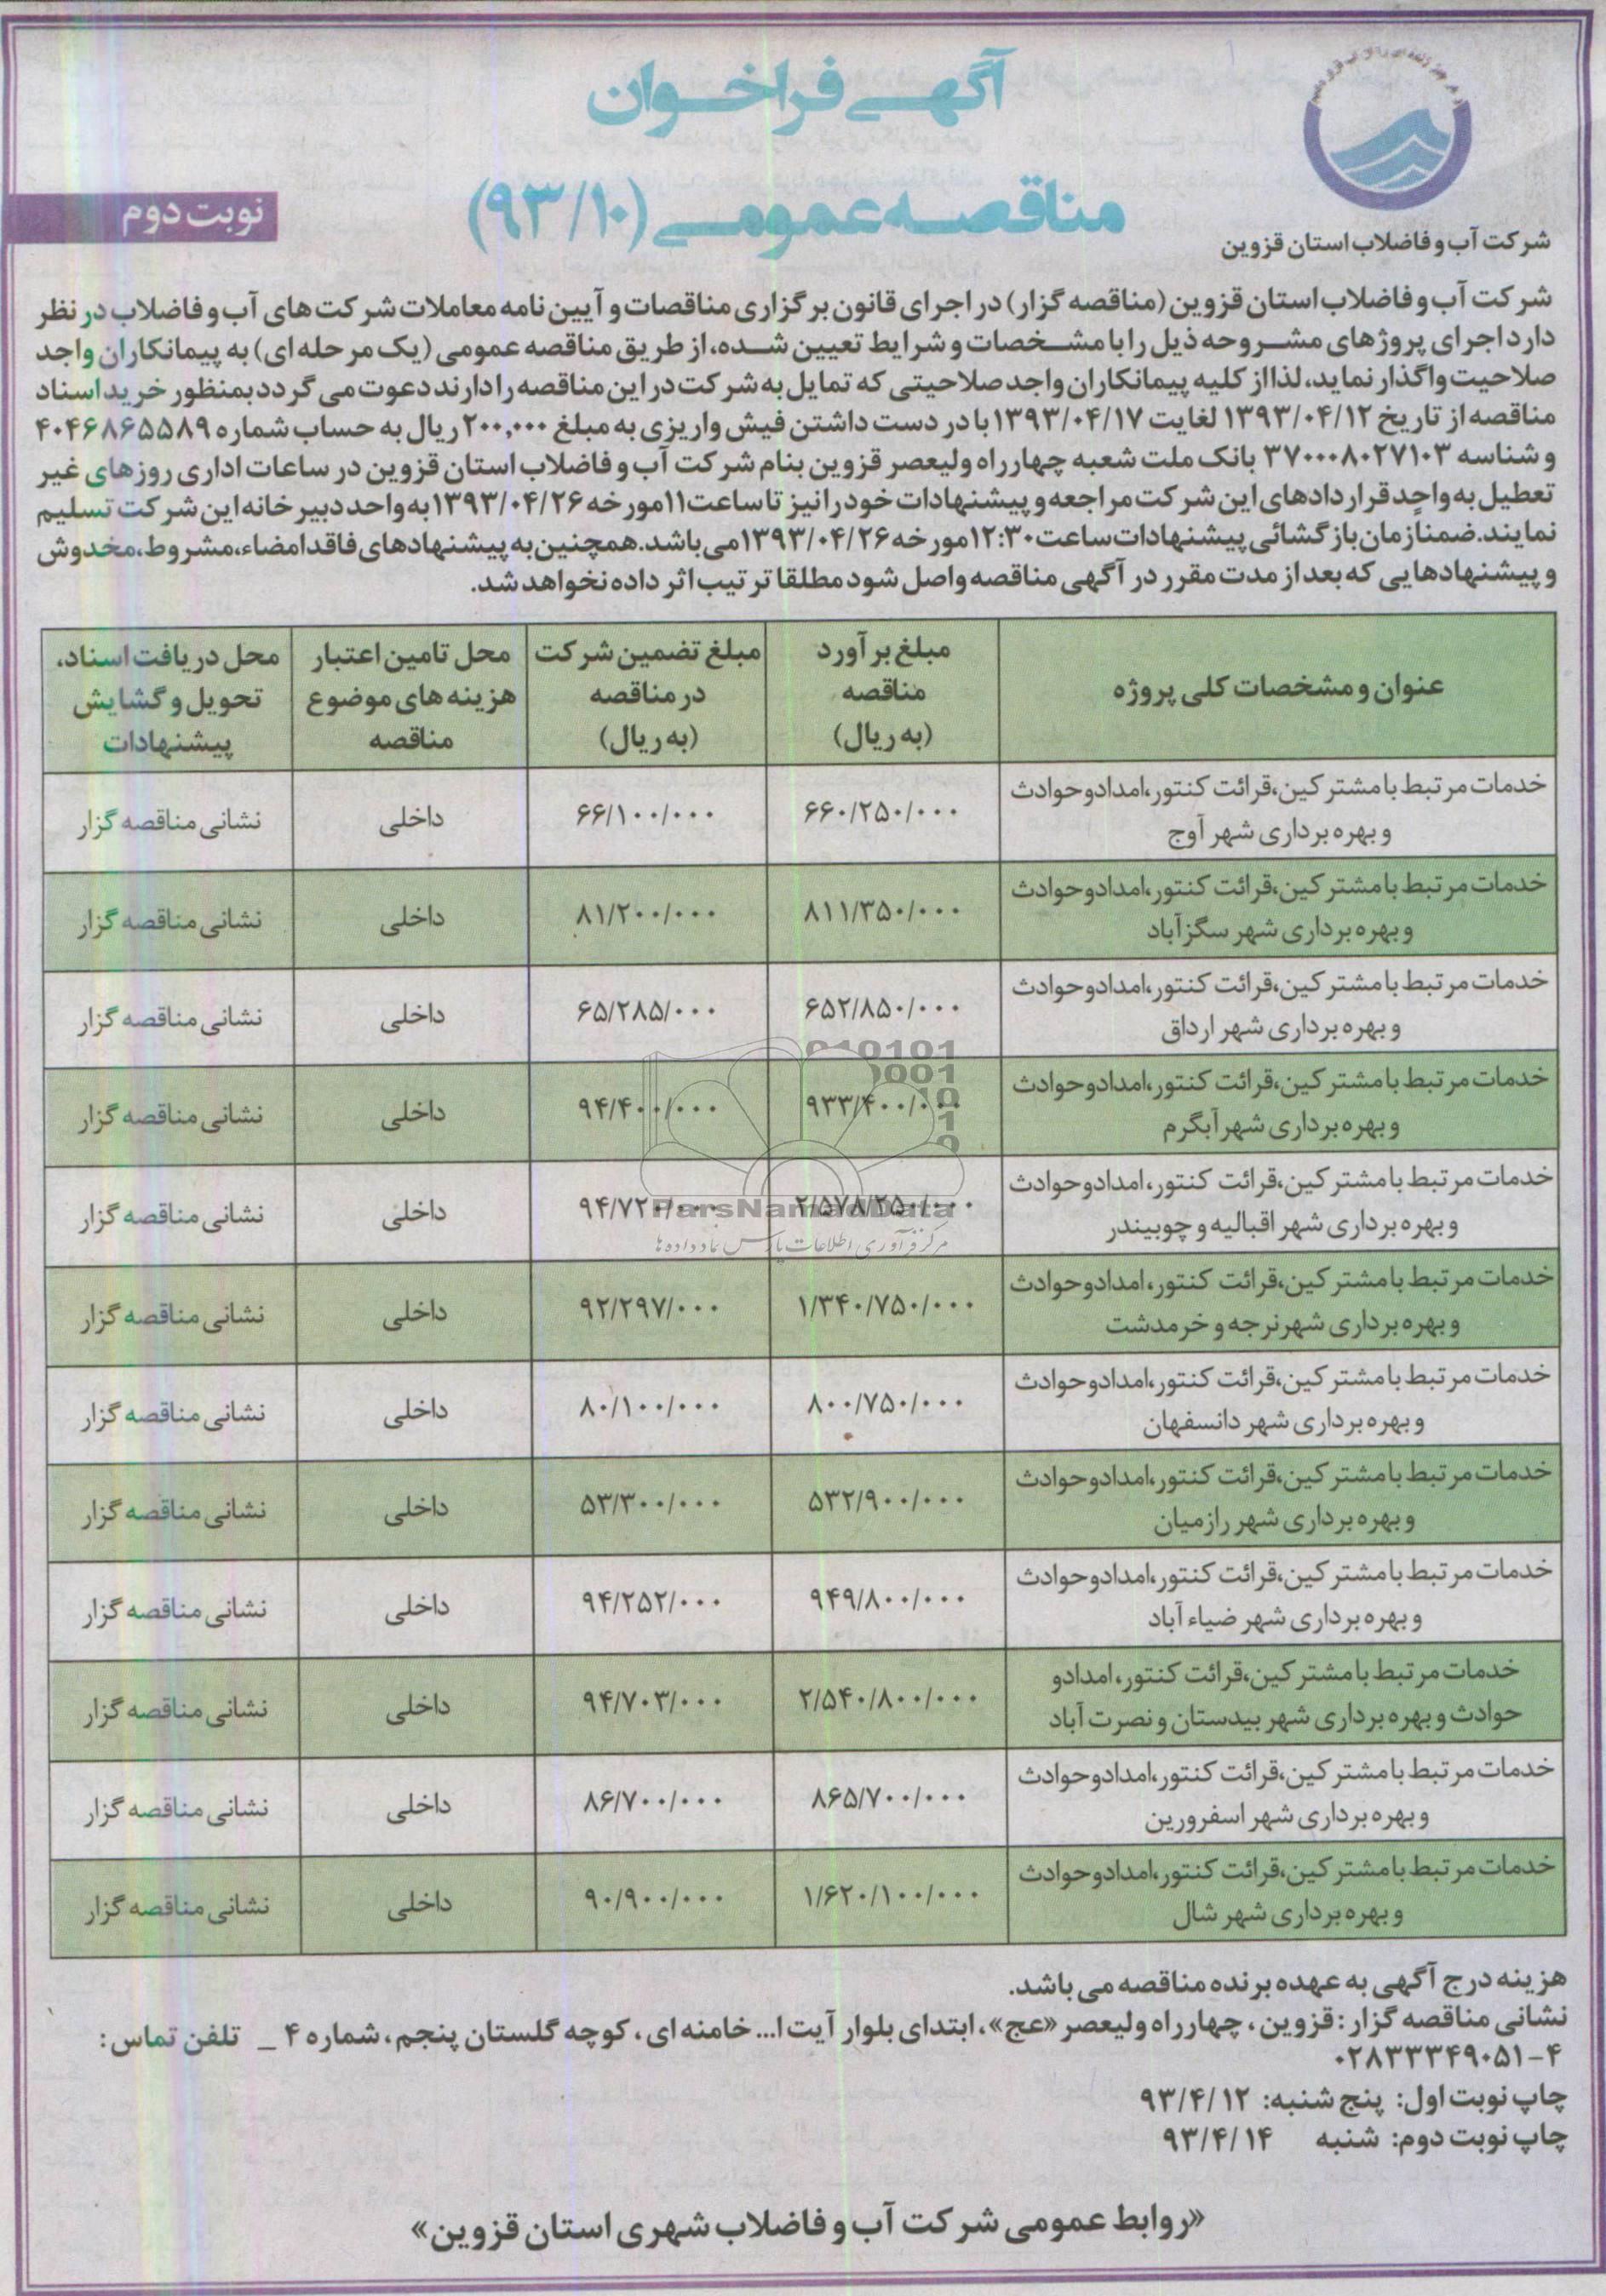 آگهی فراخوان
مناقصه عمومی (۹۳/۱۰)
نوبت دوم
شرکت آب و فاضلاب استان قزوین
شرکت آب و فاضلاب استان قزوین (مناقصه گزار) در اجرای قانون برگزاری مناقصات و آیین نامه معاملات شرکت های آب و فاضلاب در نظر
دارد اجرای پروژهای مشروحه ذیل را با مشخصات و شرایط تعیین شده، از طریق مناقصه عمومی (یک مرحله ای) به پیمانکاران واجد
صلاحیت واگذار نماید، لذا از کلیه پیمانکاران واجد صلاحیتی که تمایل به شرکت در این مناقصه را دارند دعوت می گردد بمنظور خرید اسناد
مناقصه از تاریخ ۱۳۹۳/۰۴/۱۲ لغایت ۱۳۹۳/۰۴/۱۷ با در دست داشتن فیش واریزی به مبلغ ۲۰۰,۰۰۰ ریال به حساب شماره ۴۰۴۶۸۶۵۵۸۹
و شناسه ۳۷۰۰۰۸۰۲۷۱۰۳ بانک ملت شعبه چهارراه ولیعصر قزوین بنام شرکت آب و فاضلاب استان قزوین در ساعات اداری روزهای غیر
تعطیل به واحد قراردادهای این شرکت مراجعه و پیشنهادات خود را نیز تا ساعت ۱۱ مورخه ۱۳۹۳/۰۴/۲۶ به واحد دبیرخانه این شرکت تسلیم
نمایند. ضمنا زمان بازگشائی پیشنهادات ساعت ۱۲:۳۰ مورخه ۱۳۹۳/۰۴/۲۶ می باشد. همچنین به پیشنهادهای فاقد امضاء، مشروط، مخدوش
و پیشنهادهایی که بعد از مدت مقرر در آگهی مناقصه واصل شود مطلقا ترتیب اثر داده نخواهد شد.
عنوان و مشخصات کلی پروژه
مبلغ برآورد
مناقصه
(به ریال)
مبلغ تضمین شرکت
در مناقصه
(به ریال)
محل تامین اعتبار
هزینه های موضوع
مناقصه
محل دریافت اسناد،
تحویل و گشایش
پیشنهادات
خدمات مرتبط با مشترکین،قرائت کنتور،امدادوحوادث
و بهره برداری شهر آوج
۶۶۰/۲۵۰/۰۰۰
۶۶/۱۰۰/۰۰۰
داخلی
نشانی مناقصه گزار
خدمات مرتبط با مشترکین،قرائت کنتور،امدادوحوادث
و بهره برداری شهر سگزآباد
۸۱۱/۳۵۰/۰۰۰
۸۱/۲۰۰/۰۰۰
داخلی
نشانی مناقصه گزار
خدمات مرتبط با مشترکین،قرائت کنتور،امدادوحوادث
و بهره برداری شهر ارداق
۶۵۲/۸۵۰/۰۰۰
۶۵/۲۸۵/۰۰۰
داخلی
نشانی مناقصه گزار
خدمات مرتبط با مشترکین،قرائت کنتور،امدادوحوادث
و بهره برداری شهرآبگرم
۹۳۳/۴۰۰/۰۰۰
۹۴/۴۰۰/۰۰۰
داخلی
نشانی مناقصه گزار
خدمات مرتبط با مشترکین،قرائت کنتور، امدادوحوادث
و بهره برداری شهر اقبالیه و چوبیندر
۲/۵۷۸/۲۵۰/۰۰۰
۹۴/۷۲۰/۰۰۰
داخلی
نشانی مناقصه گزار
خدمات مرتبط با مشترکین،قرائت کنتور، امدادوحوادث
و بهره برداری شهرنرجه و خرمدشت
۱/۳۴۰/۷۵۰/۰۰۰
۹۲/۲۹۷/۰۰۰
داخلی
نشانی مناقصه گزار
خدمات مرتبط با مشترکین،قرائت کنتور،امدادوحوادث
و بهره برداری شهر دانسفهان
۸۰۰/۷۵۰/۰۰۰
۸۰/۱۰۰/۰۰۰
داخلی
نشانی مناقصه گزار
خدمات مرتبط با مشترکین،قرائت کنتور،امدادوحوادث
و بهره برداری شهر رازمیان
۵۳۲/۹۰۰/۰۰۰
۵۳/۳۰۰/۰۰۰
داخلی
نشانی مناقصه گزار
خدمات مرتبط با مشترکین،قرائت کنتور،امدادوحوادث
و بهره برداری شهر ضیاء آباد
۹۴۹/۸۰۰/۰۰۰
۹۴/۲۵۲/۰۰۰
داخلی
نشانی مناقصه گزار
خدمات مرتبط با مشترکین،قرائت کنتور، امدادو
حوادث و بهره برداری شهر بیدستان و نصرت آباد
۲/۵۴۰/۸۰۰/۰۰۰
۹۴/۷۰۳/۰۰۰
داخلی
نشانی مناقصه گزار
خدمات مرتبط با مشترکین،قرائت کنتور،امدادوحوادث
و بهره برداری شهر اسفرورین
۸۶۵/۷۰۰/۰۰۰
۸۶/۷۰۰/۰۰۰
داخلی
نشانی مناقصه گزار
خدمات مرتبط با مشترکین،قرائت کنتور،امدادوحوادث
و بهره برداری شهر شال
۱/۶۲۰/۱۰۰/۰۰۰
۹۰/۹۰۰/۰۰۰
داخلی
نشانی مناقصه گزار
010101
0001
10
1
0
ParsNamadData
مرکز فرآوری اطلاعات پارس نماد داده ها
هزینه درج آگهی به عهده برنده مناقصه می باشد.
نشانی مناقصه گزار: قزوین، چهارراه ولیعصر «عج»، ابتدای بلوار آیت ا... خامنه ای، کوچه گلستان پنجم، شماره ۴ _ تلفن تماس:
۰۲۸۳۳۳۴۹۰۵۱-۴
چاپ نوبت اول: پنج شنبه: ۹۳/۴/۱۲
چاپ نوبت دوم: شنبه ۹۳/۴/۱۴
«روابط عمومی شرکت آب و فاضلاب شهری استان قزوین»